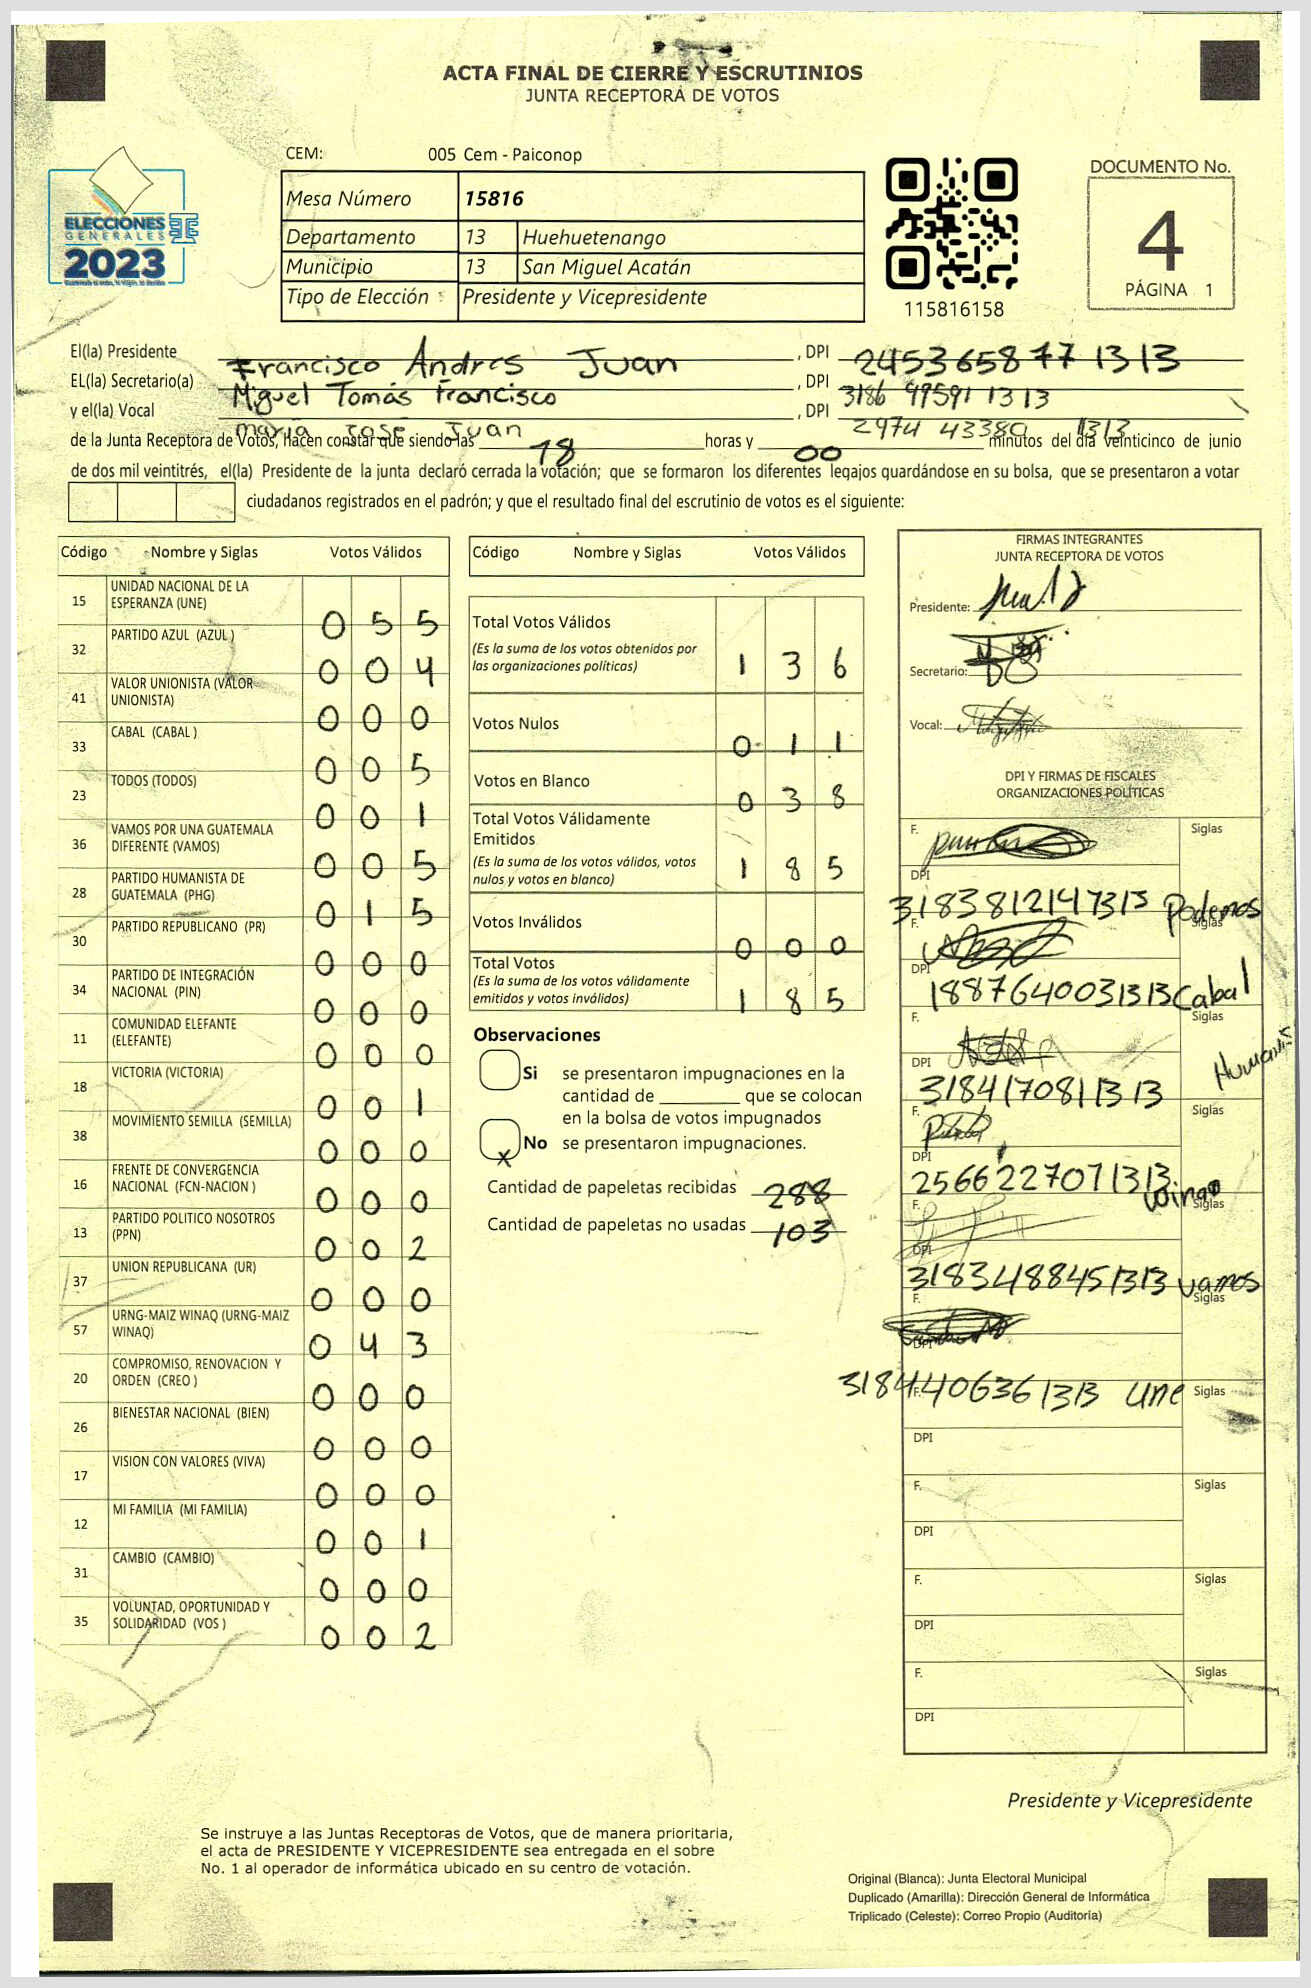 ACTA FINAL DE CIERRE Y ESCRUTINIOS
JUNTA RECEPTORA DE VOTOS
ELECCIONES
GENERALES
2023
CEM: 005 Cem - Paiconop
Mesa Número 15816
Departamento 13 Huehuetenango
Municipio 13 San Miguel Acatán
Tipo de Elección Presidente y Vicepresidente
115816158
DOCUMENTO No.
4
PÁGINA 1
El(la) Presidente Francisco Andres Juan , DPI 2453658771313
EL(la) Secretario(a) Miguel Tomás Francisco , DPI 3186 99591 1313
y el(la) Vocal maria jose Juan , DPI 2974 43380 1313
de la Junta Receptora de Votos, hacen constar que siendo las 18 horas y 00 minutos del día veinticinco de junio
de dos mil veintitrés, el(la) Presidente de la junta declaró cerrada la votación; que se formaron los diferentes legajos guardándose en su bolsa, que se presentaron a votar
ciudadanos registrados en el padrón; y que el resultado final del escrutinio de votos es el siguiente:
Código Nombre y Siglas Votos Válidos
15 UNIDAD NACIONAL DE LA ESPERANZA (UNE) 0 5 5
32 PARTIDO AZUL (AZUL ) 0 0 4
41 VALOR UNIONISTA (VALOR UNIONISTA) 0 0 0
33 CABAL (CABAL ) 0 0 5
23 TODOS (TODOS) 0 0 1
36 VAMOS POR UNA GUATEMALA DIFERENTE (VAMOS) 0 0 5
28 PARTIDO HUMANISTA DE GUATEMALA (PHG) 0 1 5
30 PARTIDO REPUBLICANO (PR) 0 0 0
34 PARTIDO DE INTEGRACIÓN NACIONAL (PIN) 0 0 0
11 COMUNIDAD ELEFANTE (ELEFANTE) 0 0 0
18 VICTORIA (VICTORIA) 0 0 1
38 MOVIMIENTO SEMILLA (SEMILLA) 0 0 0
16 FRENTE DE CONVERGENCIA NACIONAL (FCN-NACION ) 0 0 0
13 PARTIDO POLITICO NOSOTROS (PPN) 0 0 2
37 UNION REPUBLICANA (UR) 0 0 0
57 URNG-MAIZ WINAQ (URNG-MAIZ WINAQ) 0 4 3
20 COMPROMISO, RENOVACION Y ORDEN (CREO ) 0 0 0
26 BIENESTAR NACIONAL (BIEN) 0 0 0
17 VISION CON VALORES (VIVA) 0 0 0
12 MI FAMILIA (MI FAMILIA) 0 0 1
31 CAMBIO (CAMBIO) 0 0 0
35 VOLUNTAD, OPORTUNIDAD Y SOLIDARIDAD (VOS ) 0 0 2
Código Nombre y Siglas Votos Válidos
Total Votos Válidos 1 3 6
(Es la suma de los votos obtenidos por
las organizaciones políticas)
Votos Nulos 0 1 1
Votos en Blanco 0 3 8
Total Votos Válidamente
Emitidos 1 8 5
(Es la suma de los votos válidos, votos
nulos y votos en blanco)
Votos Inválidos 0 0 0
Total Votos 1 8 5
(Es la suma de los votos válidamente
emitidos y votos inválidos)
Observaciones
Si se presentaron impugnaciones en la
cantidad de ________ que se colocan
en la bolsa de votos impugnados
x No se presentaron impugnaciones.
Cantidad de papeletas recibidas 288
Cantidad de papeletas no usadas 103
FIRMAS INTEGRANTES
JUNTA RECEPTORA DE VOTOS
Presidente:
Secretario:
Vocal:
DPI Y FIRMAS DE FISCALES
ORGANIZACIONES POLÍTICAS
F. Siglas
DPI 3183812147313 Podemos
F. Siglas
DPI 1887640031313 Cabal
F. Siglas
DPI 3184170811313 Humanis
F. Siglas
DPI 2566227071313 winaq
F. Siglas
DPI 3183488451313 vamos
F. Siglas
DPI 3184406361313 une
F. Siglas
DPI
F. Siglas
DPI
F. Siglas
DPI
F. Siglas
DPI
Presidente y Vicepresidente
Se instruye a las Juntas Receptoras de Votos, que de manera prioritaria,
el acta de PRESIDENTE Y VICEPRESIDENTE sea entregada en el sobre
No. 1 al operador de informática ubicado en su centro de votación.
Original (Blanca): Junta Electoral Municipal
Duplicado (Amarilla): Dirección General de Informática
Triplicado (Celeste): Correo Propio (Auditoría)